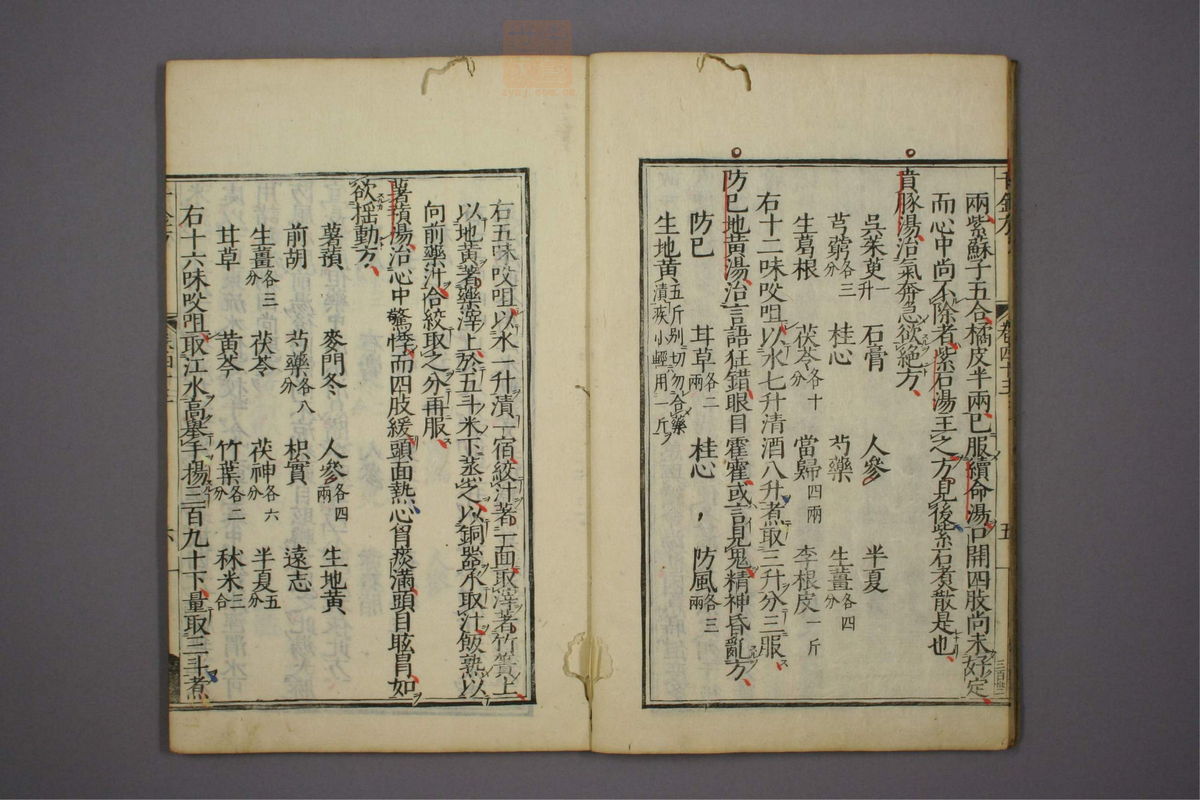 兩紫蘇子五合橘皮半兩已服續命湯口開四肢尚未好定
而心中尚不除者紫石湯主之方見後紫石煮散是也
賁豚湯治氣奔急欲絕方
吳茱萸一升 石膏 人參 半夏
芎藭各三分 桂心 芍藥 生薑各四分
生葛根 茯苓各十分 當歸四兩 李根皮一斤
右十二味㕮咀以水七升清酒八升煮取三升分三服
防巳地黃湯治言語狂錯眼目霍霍或言見鬼精神昏亂方
防巳 甘草各二兩 桂心 防風各三兩
生地黃五斤别切勿合藥漬疾小輕用一斤
右五味㕮咀以水一升漬一宿絞汁著一面取滓著竹簀上
以地黃著藥滓上於五斗米下蒸之以銅器承取汁飯熟以
向前藥汁合絞取之分再服
薯蕷湯治心中驚悸而四肢緩頭面熱心胷痰滿頭目眩冒如
欲摇動方
薯蕷 麥門冬 人參各四兩 生地黃
前胡 芍藥各八分 枳實 遠志
生薑各三分 茯苓 茯神各六分 半夏五分
甘草 黃芩 竹葉各二分 秫米三合
右十六味㕮咀取江水高舉手揚三百九十下量取三斗煮